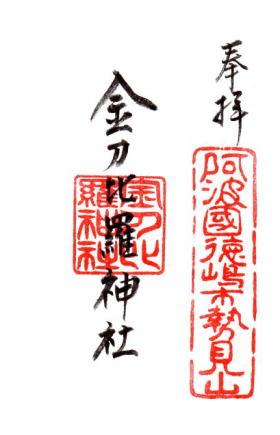 奉拝
阿波國徳嶋市勢見山
金刀比羅神社
金刀比羅神社